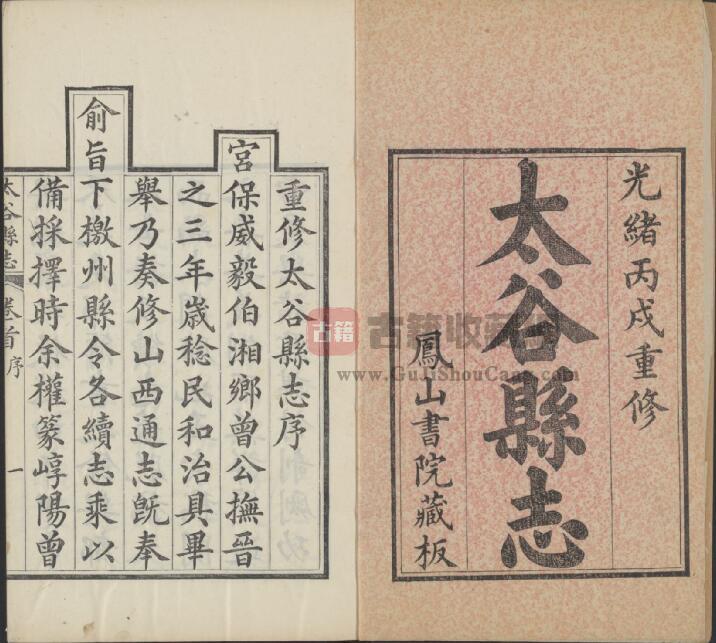 光緒丙戌重修
太谷縣志
鳳山書院藏板
重修太谷縣志序
宮保威毅伯湘鄉曾公撫晉
之三年歲稔民和治具畢
舉乃奏修山西通志旣奉
俞旨下檄州縣令各續志乘以
備採擇時余權篆崞陽曾
太谷縣志
卷首
序
一
古籍
古籍收藏
www.GuJiShouCang.com